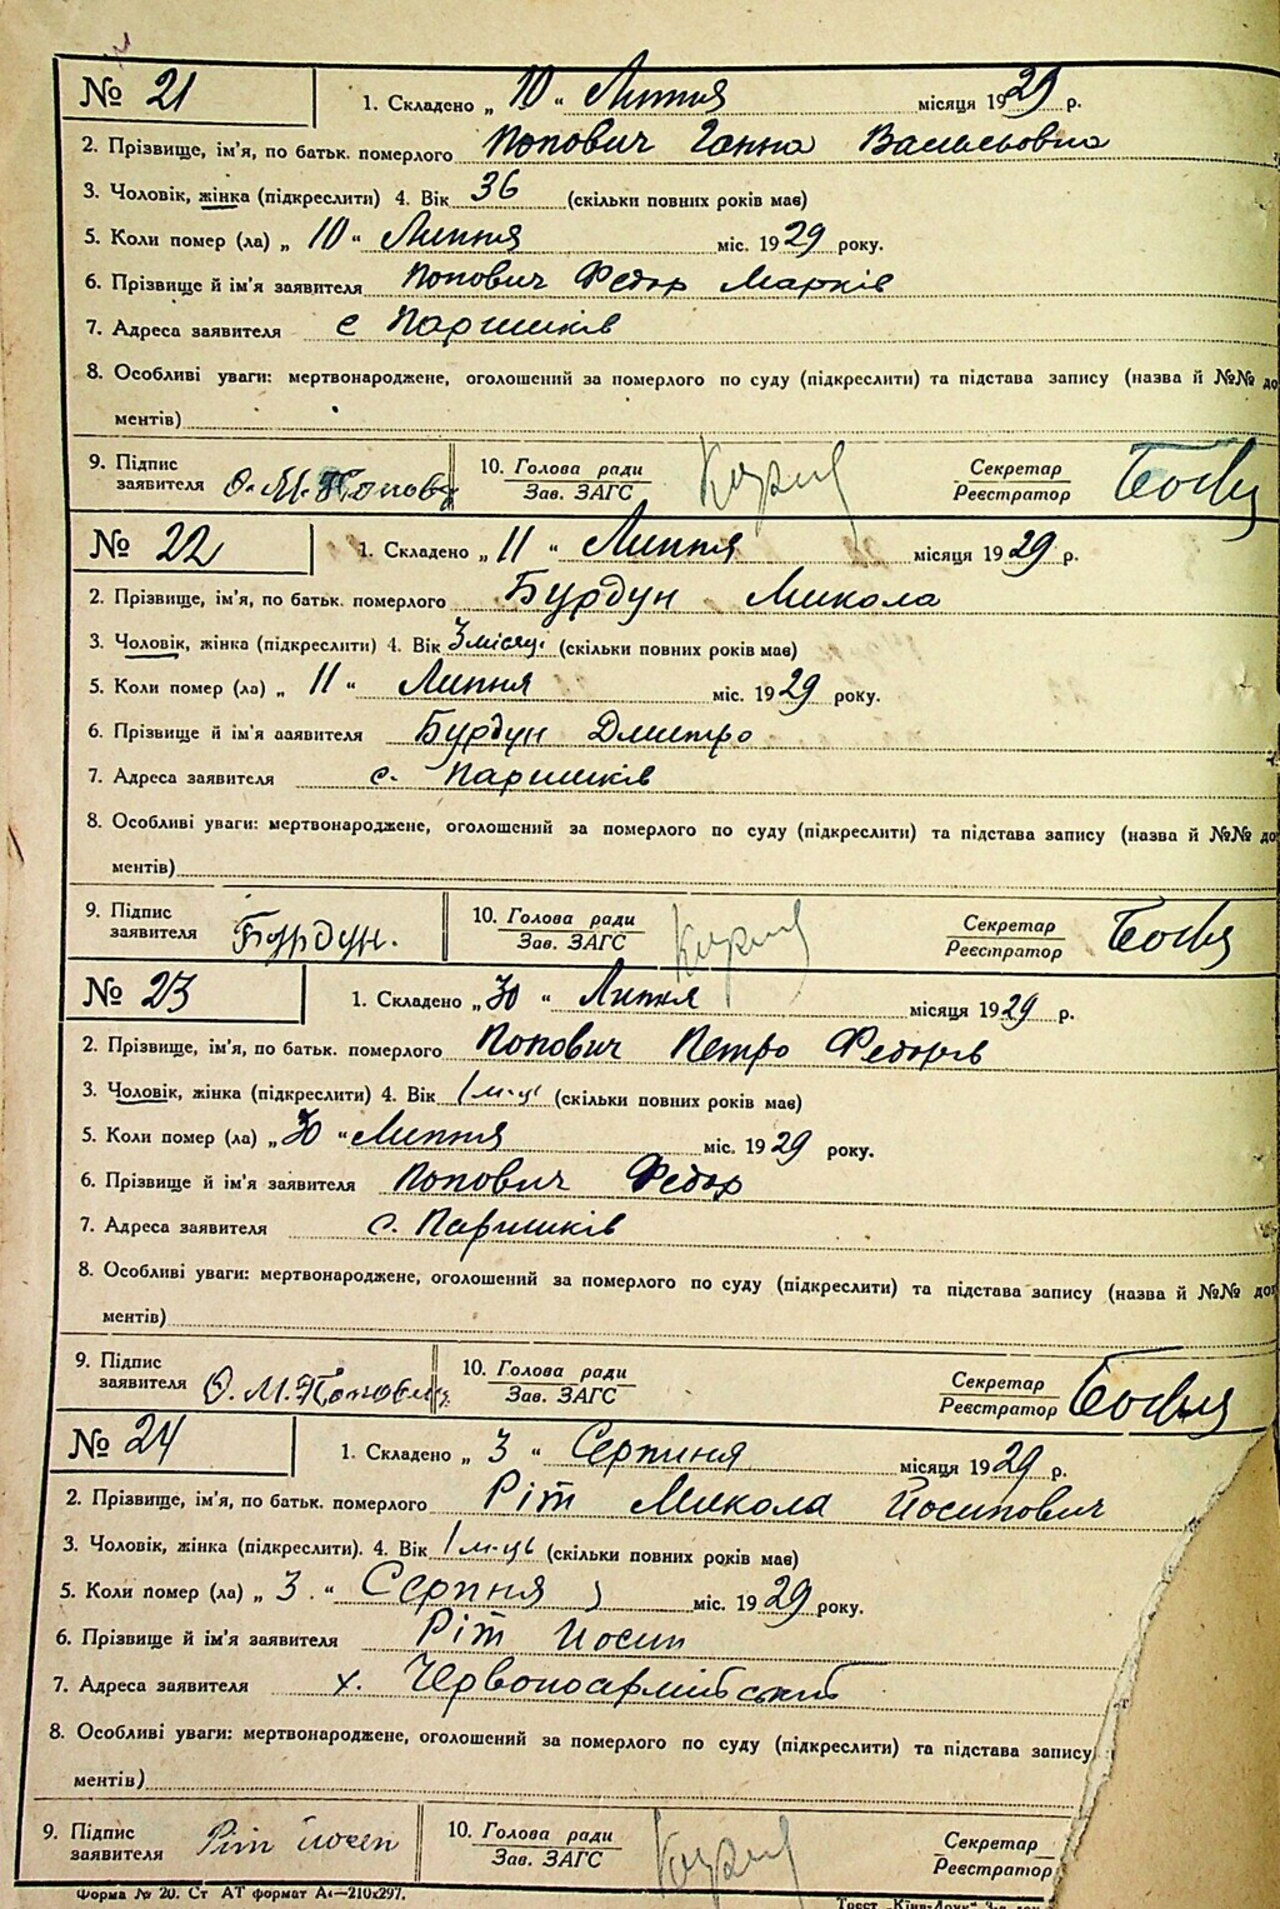 № 21 1. Складено „ 10 “ Липня місяця 1929 р.
2. Прізвище, ім'я, по батьк. померлого Попович Ганна Васильовна
3. Чоловік, жінка (підкреслити) 4. Вік 36 (скільки повних років має)
5. Коли помер (ла) „ 10 “ Липня міс. 1929 року.
6. Прізвище й ім'я заявителя Попович Федор Марків
7. Адреса заявителя с Паришків
8. Особливі уваги: мертвонароджене, оголошений за померлого по суду (підкреслити) та підстава запису (назва й №№ до
ментів)
9. Підпис заявителя О. М. Попов 10. Голова ради Секретар
Зав. ЗАГС Реєстратор
№ 22 1. Складено „ 11 “ Липня місяця 1929 р.
2. Прізвище, ім'я, по батьк. померлого Бурдун Микола
3. Чоловік, жінка (підкреслити) 4. Вік 3 місяці (скільки повних років має)
5. Коли помер (ла) „ 11 “ Липня міс. 1929 року.
6. Прізвище й ім'я заявителя Бурдун Дмитро
7. Адреса заявителя с. Паришків
8. Особливі уваги: мертвонароджене, оголошений за померлого по суду (підкреслити) та підстава запису (назва й №№ до
ментів)
9. Підпис заявителя Бурдун. 10. Голова ради Секретар
Зав. ЗАГС Реєстратор
№ 23 1. Складено „ 30 “ Липня місяця 1929 р.
2. Прізвище, ім'я, по батьк. померлого Попович Петро Федорів
3. Чоловік, жінка (підкреслити) 4. Вік 1 м-ць (скільки повних років має)
5. Коли помер (ла) „ 30 “ Липня міс. 1929 року.
6. Прізвище й ім'я заявителя Попович Федор
7. Адреса заявителя с. Паришків
8. Особливі уваги: мертвонароджене, оголошений за померлого по суду (підкреслити) та підстава запису (назва й №№ до
ментів)
9. Підпис заявителя О. М. Попович 10. Голова ради Секретар
Зав. ЗАГС Реєстратор
№ 24 1. Складено „ 3 “ Серпня місяця 1929 р.
2. Прізвище, ім'я, по батьк. померлого Ріт Микола Йосипович
3. Чоловік, жінка (підкреслити). 4. Вік 1 м-ць (скільки повних років має)
5. Коли помер (ла) „ 3 . “ Серпня міс. 1929 року.
6. Прізвище й ім'я заявителя Ріт Йосип
7. Адреса заявителя х. Червоноармійський
8. Особливі уваги: мертвонароджене, оголошений за померлого по суду (підкреслити) та підстава запису
ментів)
9. Підпис заявителя Ріт Йосип 10. Голова ради Секретар
Зав. ЗАГС Реєстратор
Форма № 20. Ст АТ формат А4—210х297. Трест „Київ-Друк“